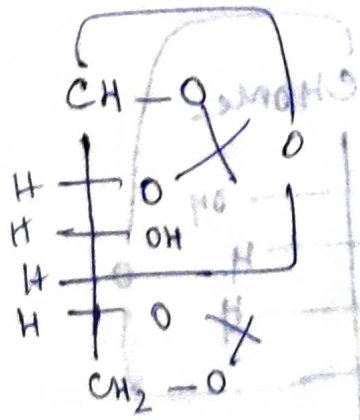 CH - O
O
H O
H OH
H
H O
CH2 - O